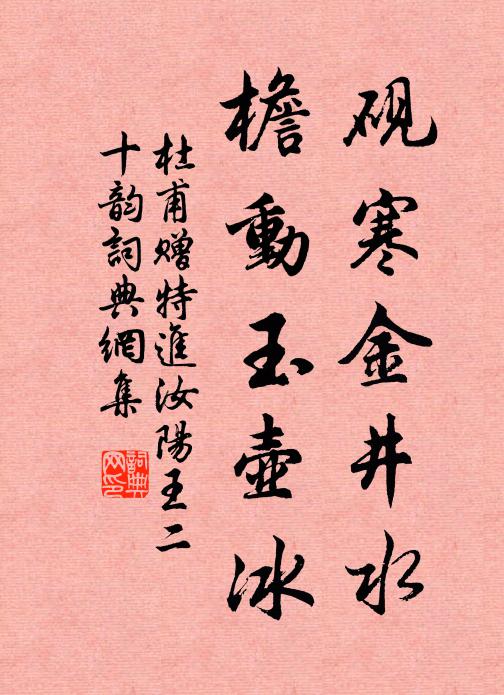 硯寒金井水
檐動玉壺冰
杜甫贈特進汝陽王二
十韵詞典網集
詞典網印